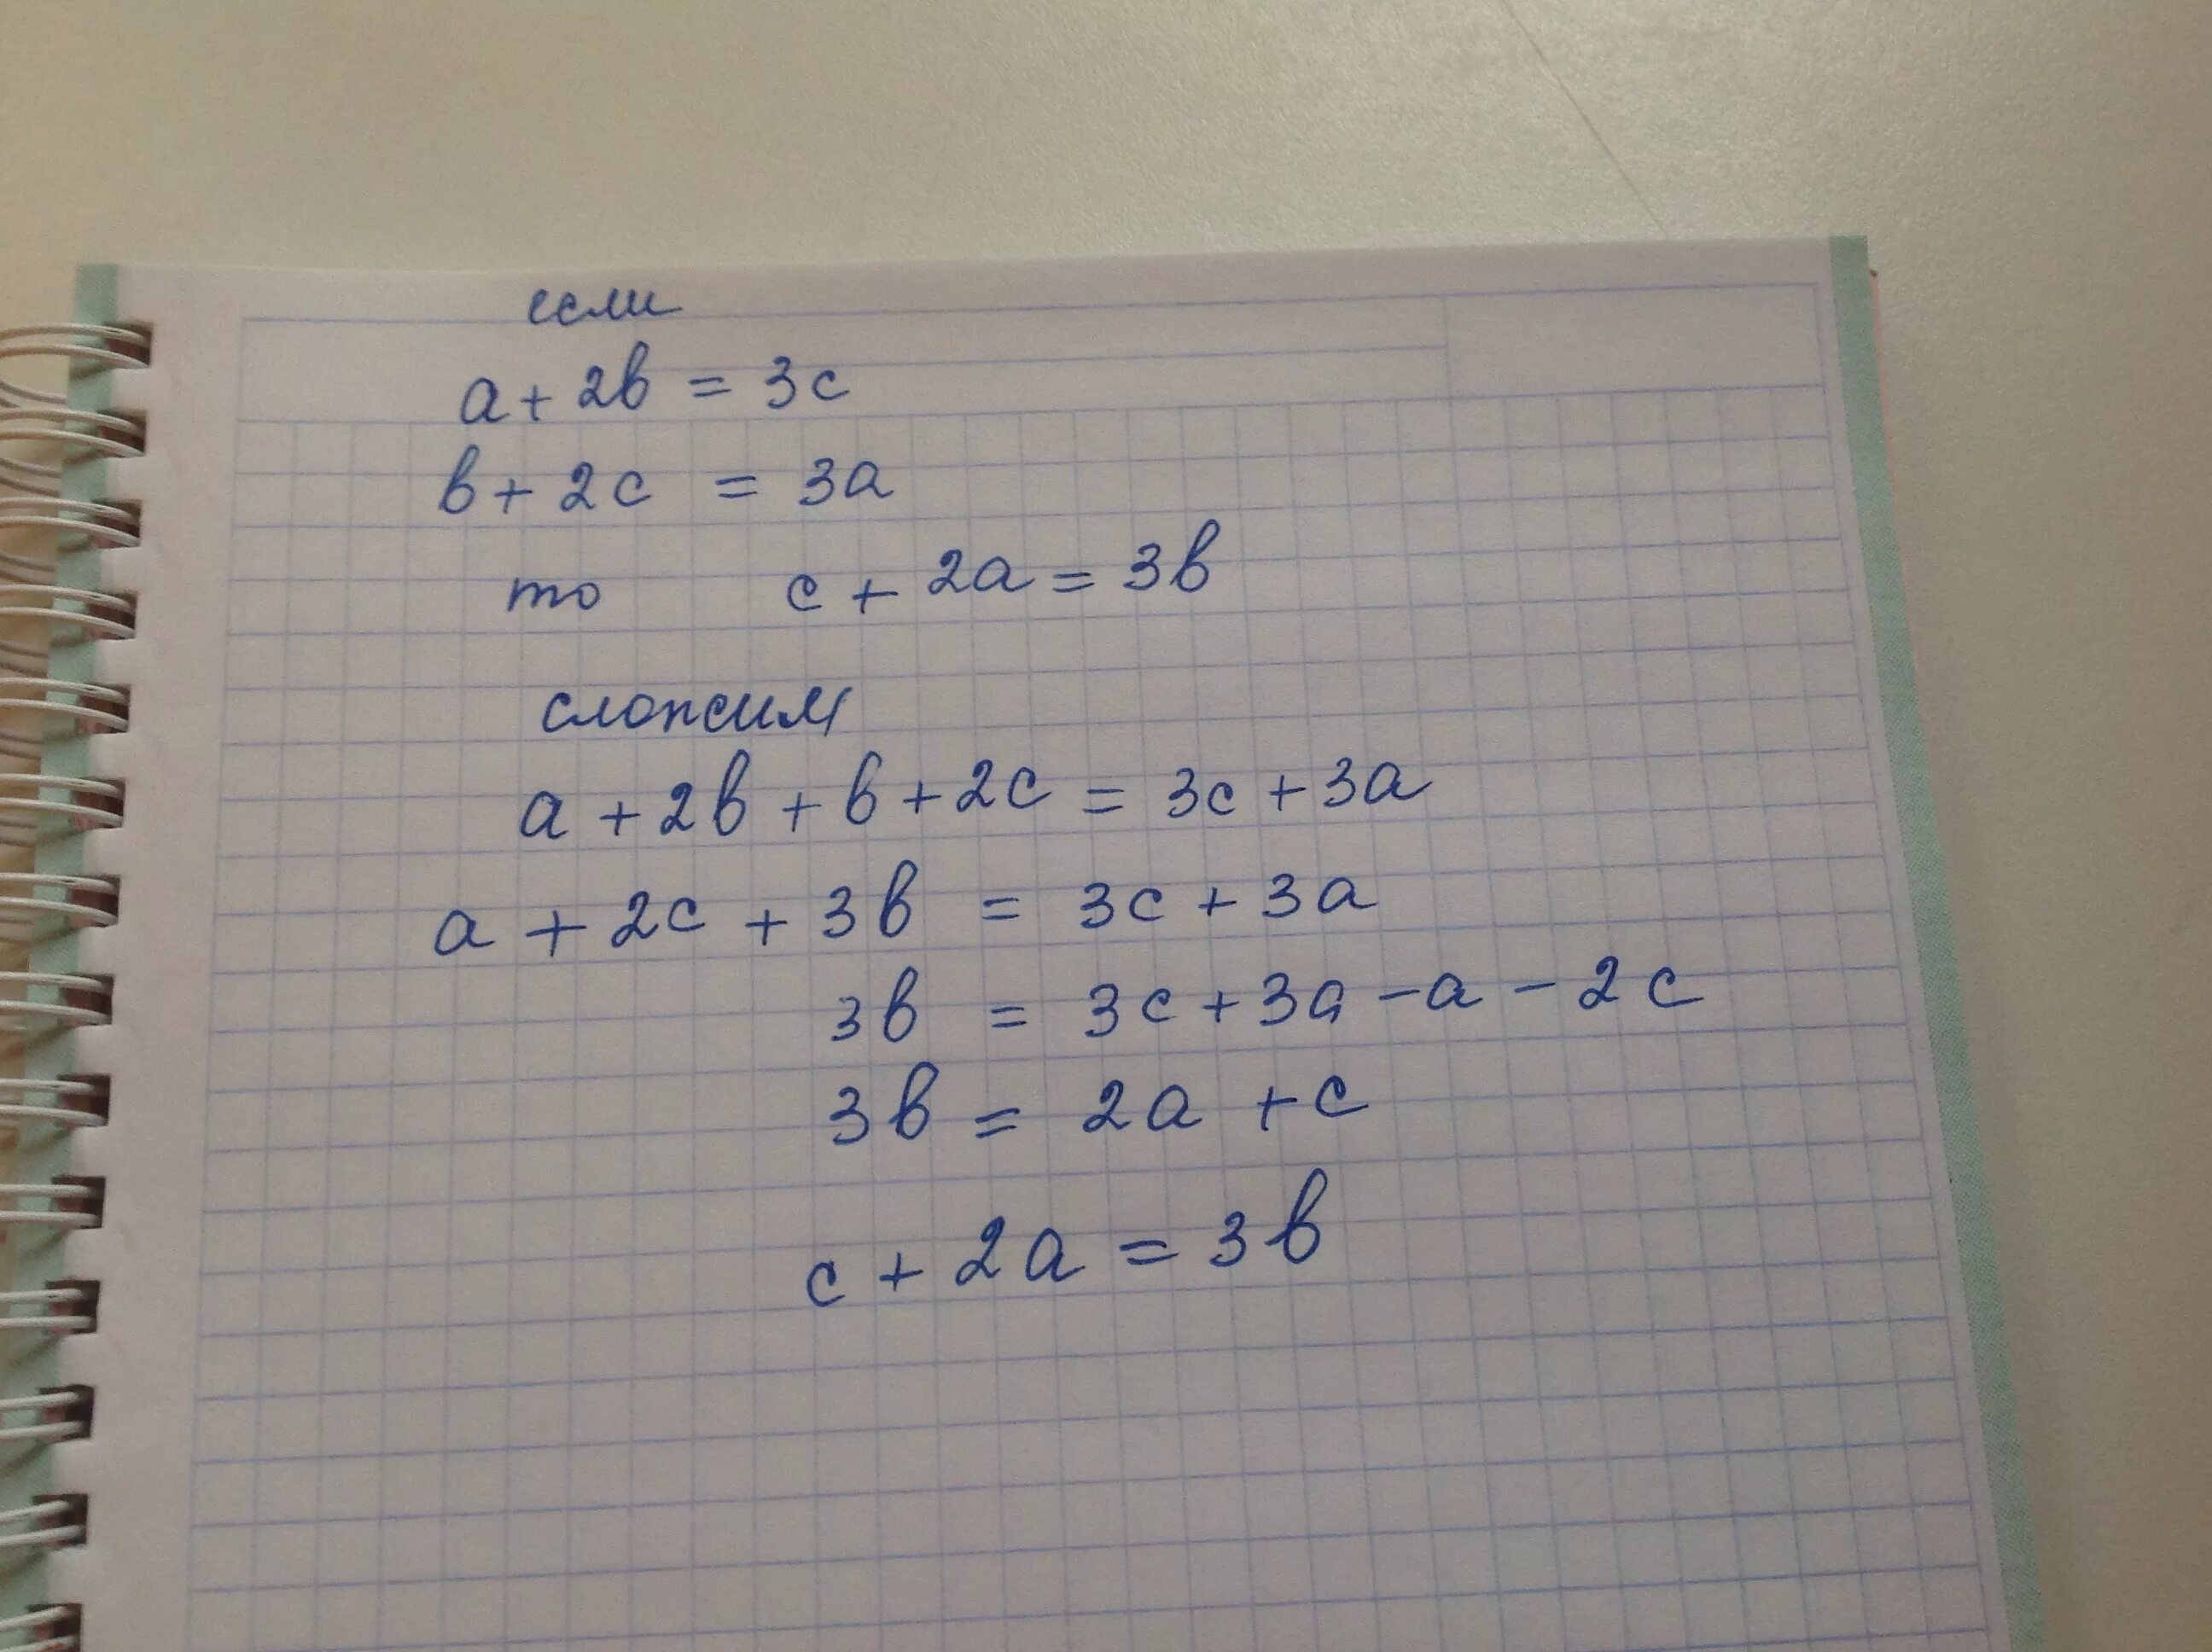 если
a + 2b = 3c
b + 2c = 3a
то c + 2a = 3b
сложим
a + 2b + b + 2c = 3c + 3a
a + 2c + 3b = 3c + 3a
3b = 3c + 3a - a - 2c
3b = 2a + c
c + 2a = 3b